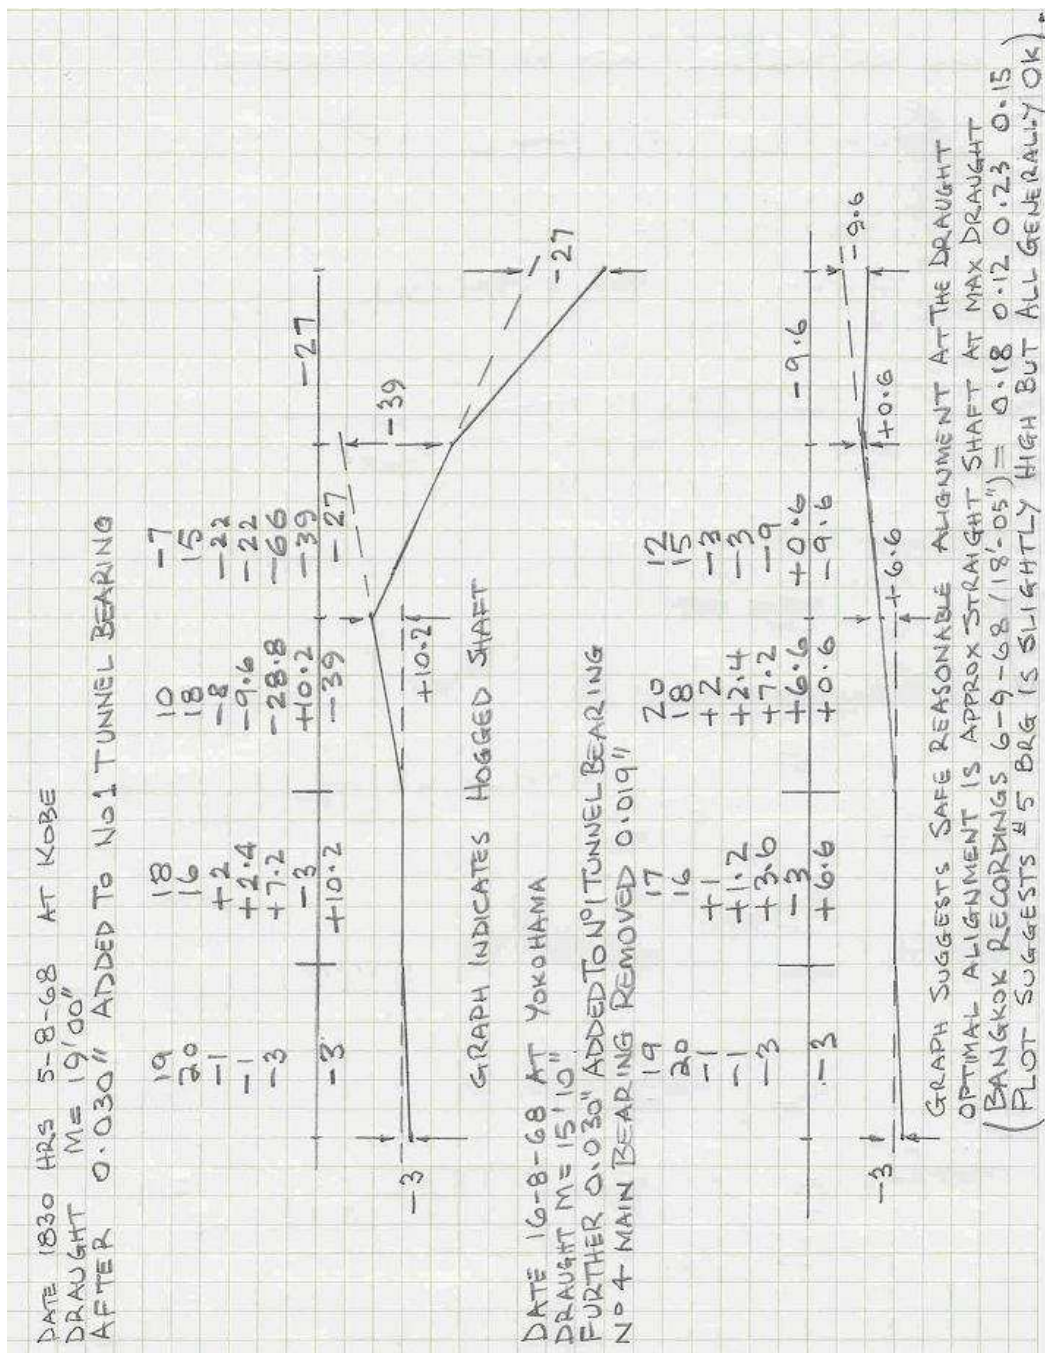 DATE 1830 HRS 5-8-68 AT KOBE
DRAUGHT M= 19'00"
AFTER 0.030" ADDED TO No1 TUNNEL BEARING
19 18 10 -7
20 16 18 15
-1 +2 -8 -22
-1 +2.4 -9.6 -22
-3 +7.2 -28.8 -66
-3 +10.2 -39
-3 +10.2 -39 -27 -27
-39
-3 +10.2 -27
GRAPH INDICATES HOGGED SHAFT
DATE 16-8-68 AT YOKOHAMA
DRAUGHT M= 15'10"
FURTHER 0.030" ADDED TO No1 TUNNEL BEARING
No 4 MAIN BEARING REMOVED 0.019"
19 17 20 12
20 16 18 15
-1 +1 +2 -3
-1 +1.2 +2.4 -3
-3 +3.6 +7.2 -9
-3 +6.6 +0.6
-3 +6.6 +0.6 -9.6 -9.6
-9.6
-3 +6.6 +0.6
GRAPH SUGGESTS SAFE REASONABLE ALIGNMENT AT THE DRAUGHT
OPTIMAL ALIGNMENT IS APPROX STRAIGHT SHAFT AT MAX DRAUGHT
(BANGKOK RECORDINGS 6-9-68 (18'-05") = 0.18 0.12 0.23 0.15
PLOT SUGGESTS #5 BRG IS SLIGHTLY HIGH BUT ALL GENERALLY OK).